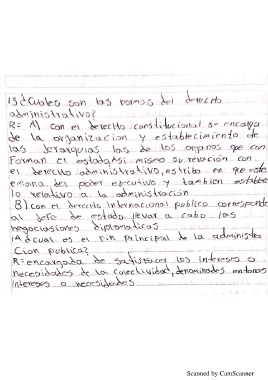 13 ¿Cuales son las normas del derecho
administrativo?
R= A) con el derecho constitucional se encarga
de la organizacion y establecimiento de
las jerarquias las de los organos que con
Forman el estado, Asi mismo su relación con
el derecho administrativo, estriba en que este
emana del poder ejecutivo y tambien establece
lo relativo a la administración
B) con el derecho Internacional publico corresponde
al jefe de estado llevar a cabo las
negociasiones diplomaticas
14 ¿cual es el Fin principal de la administra
Cion publica?
R= encargada de satisfacer los intereses o
necesidades de la colectividad, denominados entonces
intereses o necesidades
Scanned by CamScanner